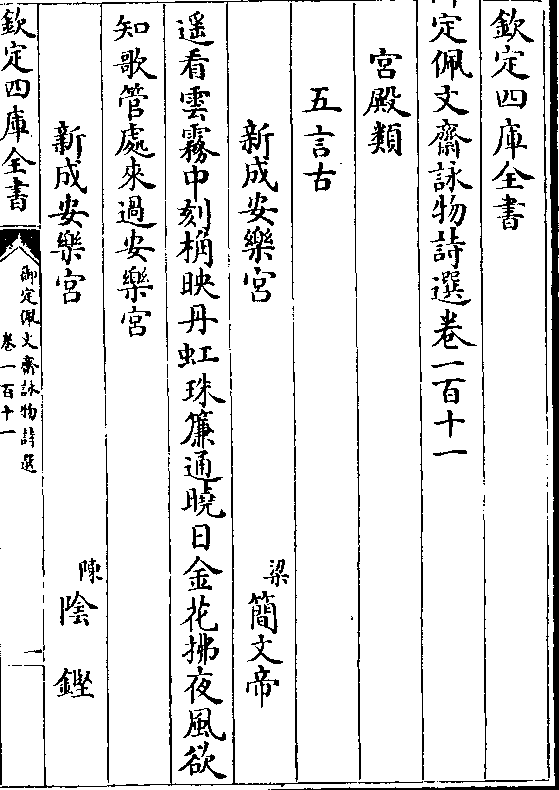 欽定四庫全書
御定佩文齋詠物詩選卷一百十一
宮殿類
五言古
新成安樂宮 梁簡文帝
遥看雲霧中刻桷映丹虹珠簾通曉日金花拂夜風欲
知歌管處來過安樂宮
新成安樂宮 陳陰鏗
欽定四庫全書
御定佩文齋詠物詩選
卷一百十一
一